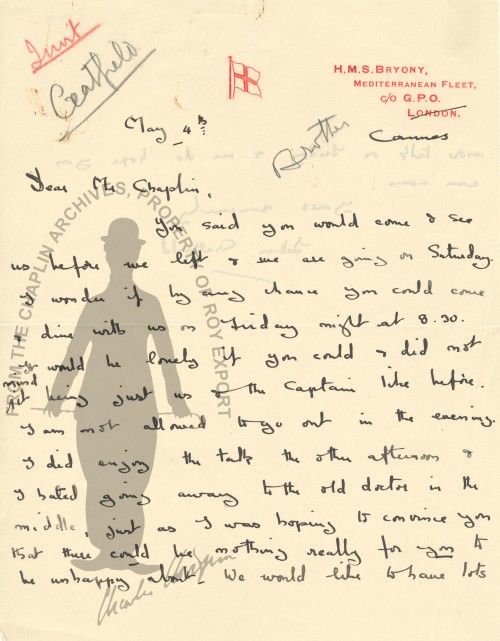 Invit
Ceatfield
H.M.S. BRYONY,
MEDITERRANEAN FLEET,
c/o G.P.O.
LONDON.
Cannes
Brother
May 4th
Dear Mr Chaplin,
You said you would come & see
us before we left & we are going on Saturday.
I wonder if by any chance you could come
& dine with us on Friday night at 8.30.
It would be lonely if you could & did not
mind
it being just us & the Captain like before.
I am not allowed to go out in the evening.
I did enjoy the talk the other afternoon &
I hated going away to the old doctor in the
middle, just as I was hoping to convince you
that there could be nothing really for you to
be unhappy about. We would like to have lots
FROM THE CHAPLIN ARCHIVES, PROPERTY OF ROY EXPORT
Charlie Chaplin